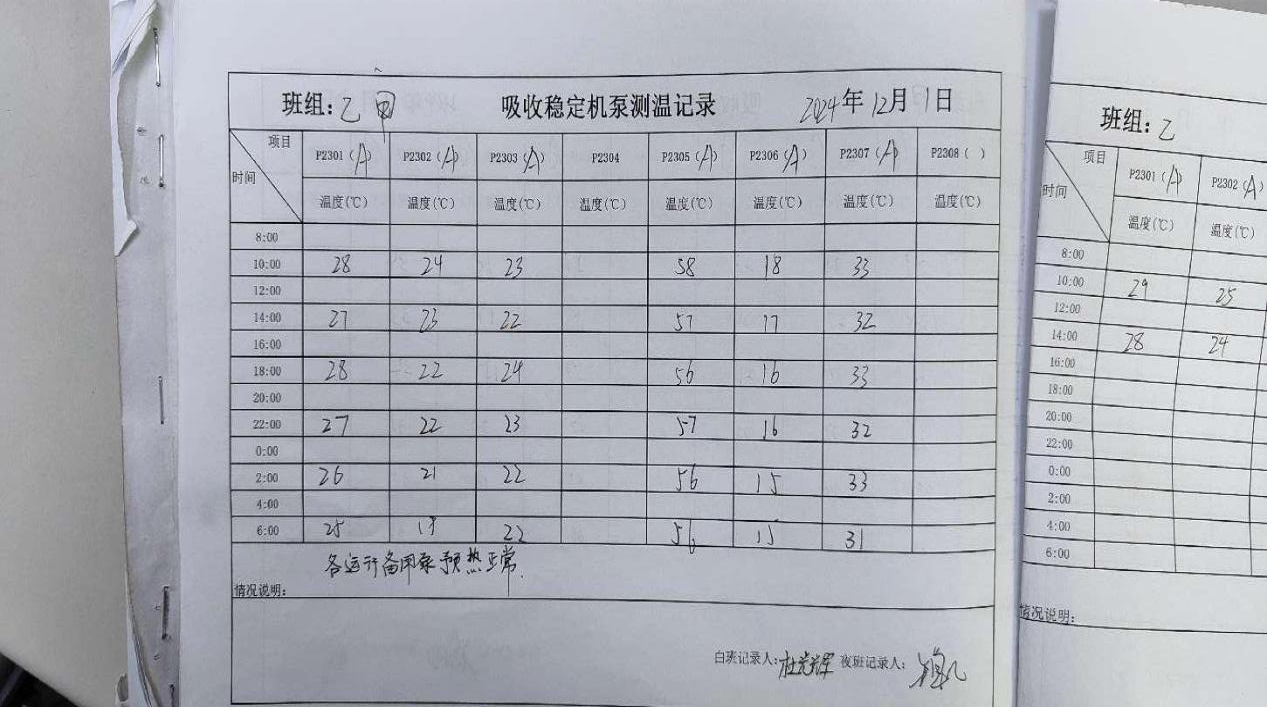 班组: 乙 甲 吸收稳定机泵测温记录 2024年12月1日
项目 P2301(A) P2302(A) P2303(A) P2304 P2305(A) P2306(A) P2307(A) P2308( )
时间 温度(℃) 温度(℃) 温度(℃) 温度(℃) 温度(℃) 温度(℃) 温度(℃) 温度(℃)
8:00
10:00 28 24 23 58 18 33
12:00
14:00 27 23 22 57 17 32
16:00
18:00 28 22 24 56 16 33
20:00
22:00 27 22 23 57 16 32
0:00
2:00 26 21 22 56 15 33
4:00
6:00 25 22 56 15 31
各运行备用泵预热正常.
情况说明:
白班记录人: 杜光辉 夜班记录人:
班组: 乙
项目 P2301(A) P2302(A)
时间 温度(℃) 温度(℃)
8:00
10:00 29 25
12:00
14:00 28 24
16:00
18:00
20:00
22:00
0:00
2:00
4:00
6:00
情况说明: